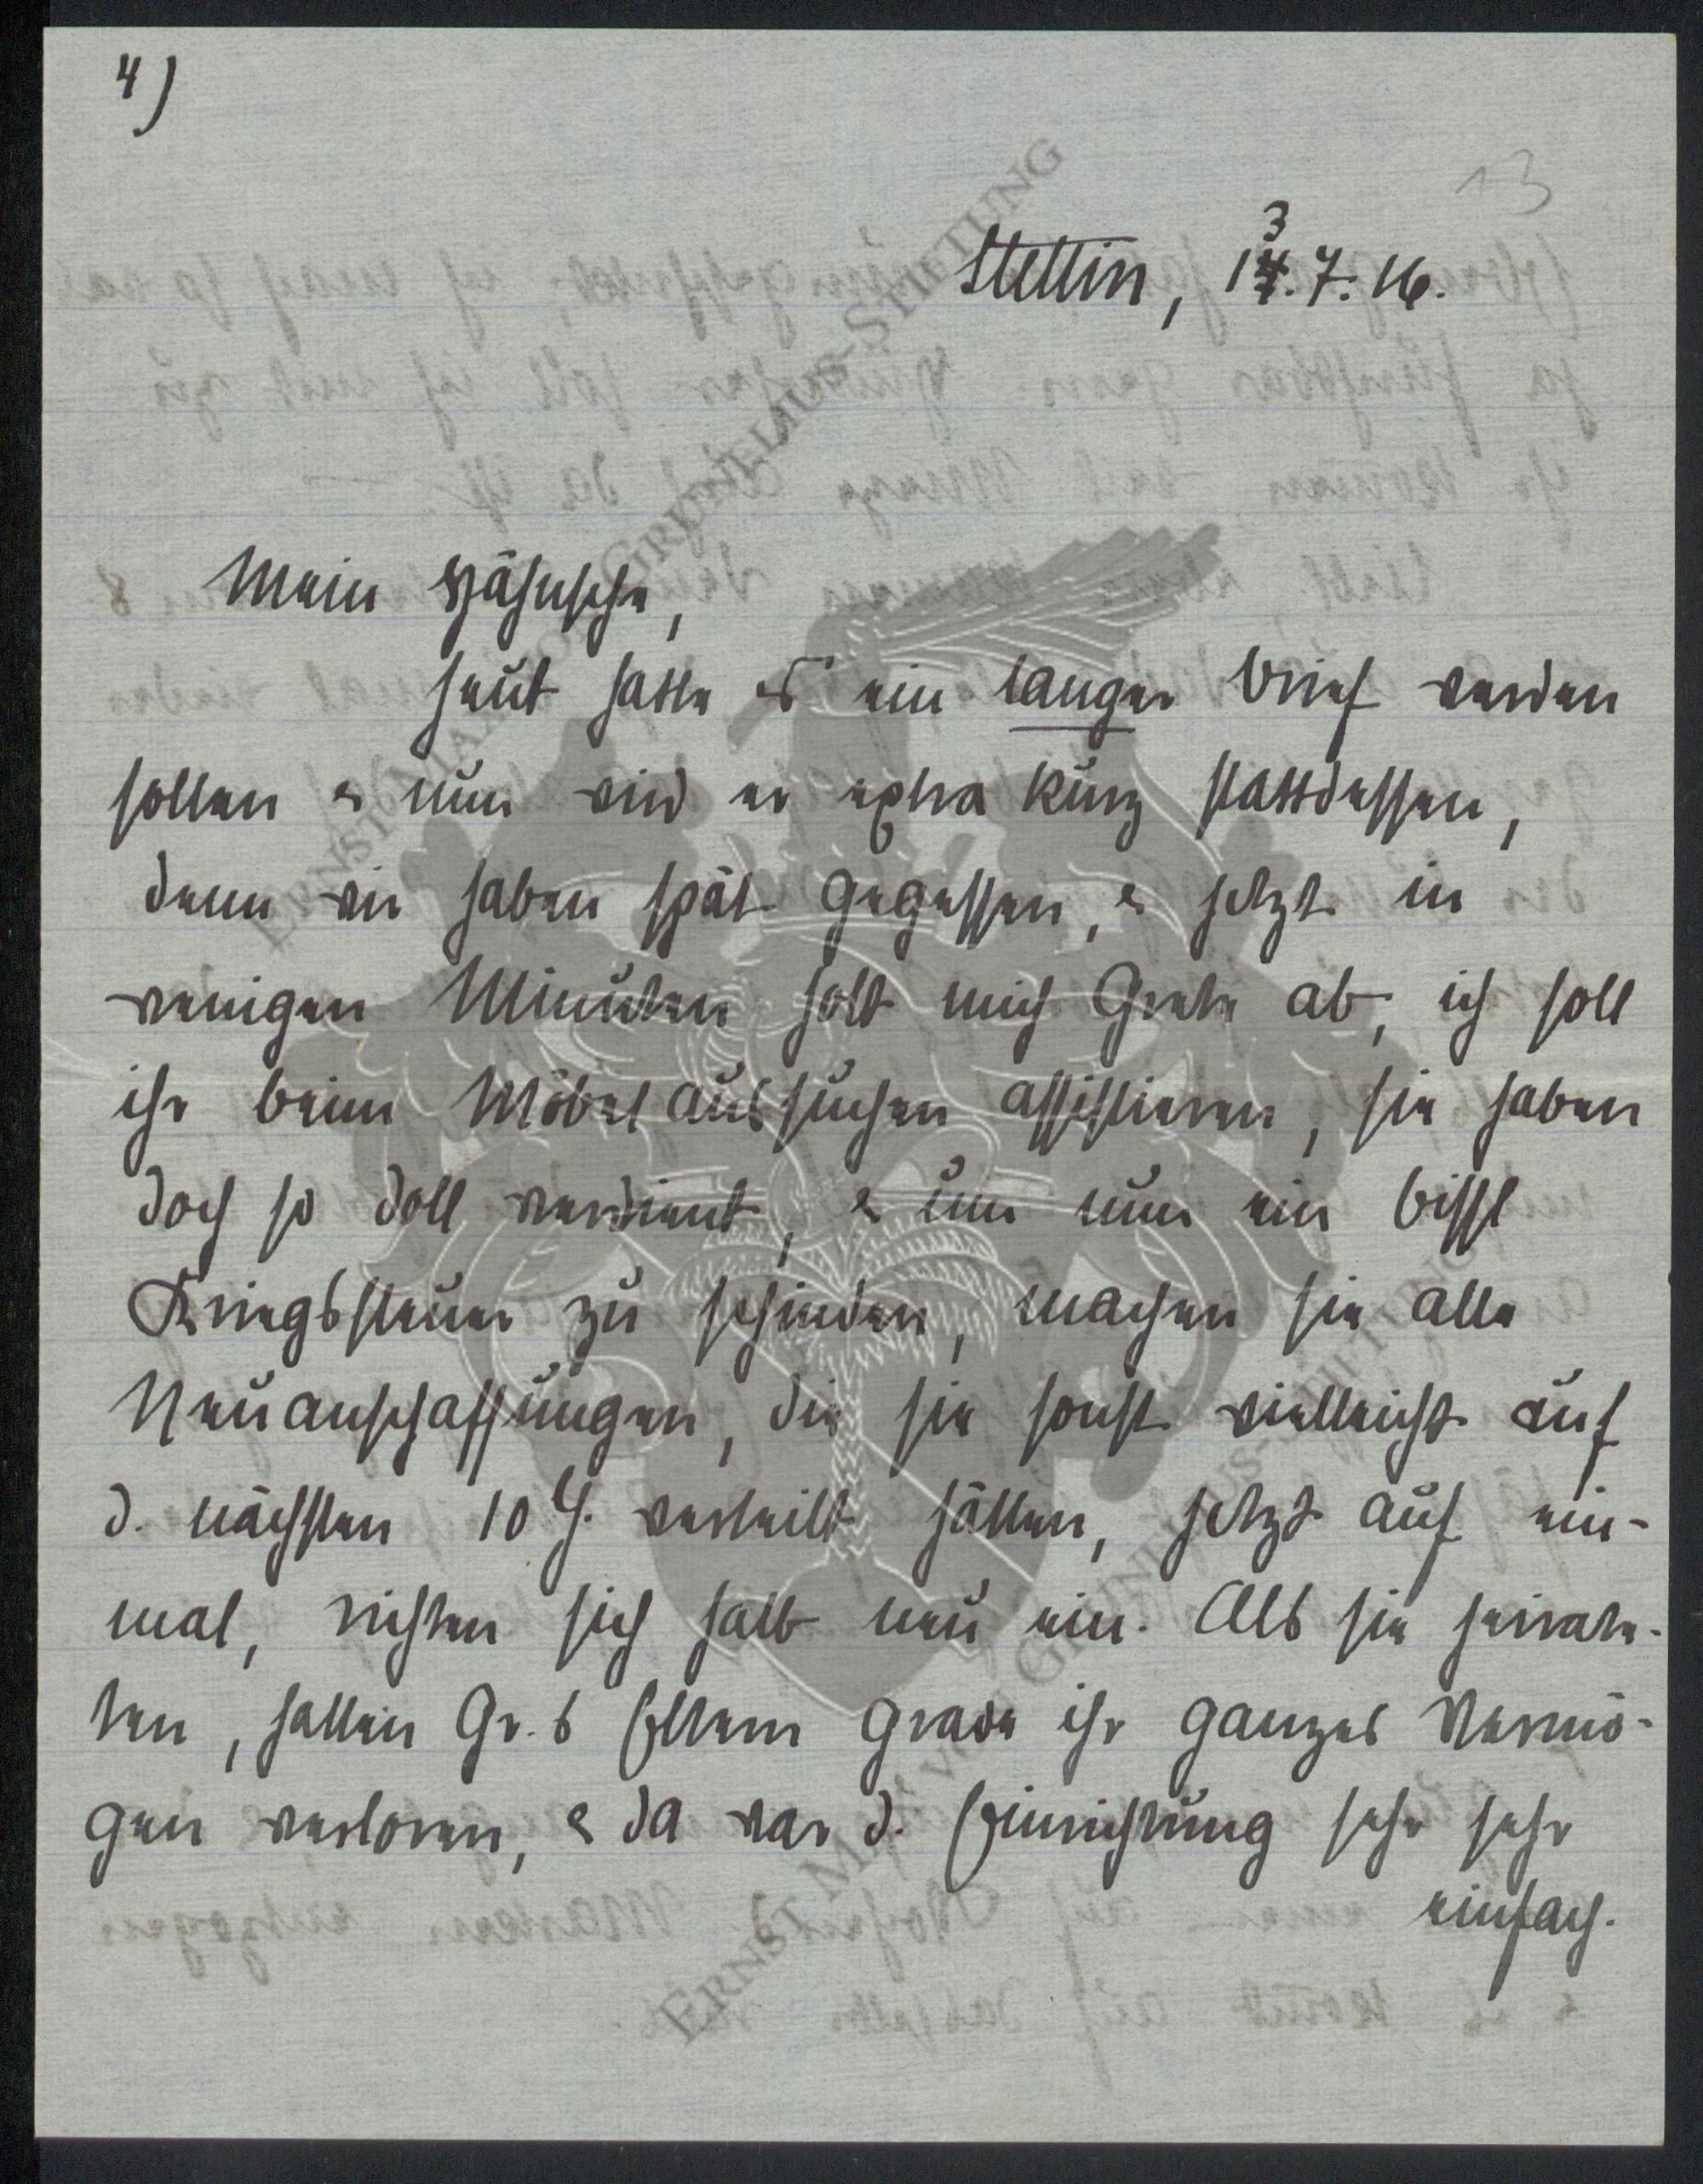 4)
13
Stettin, 13. 7. 16.
Mein Hähnsche,
heut hatte es ein langer Brief werden
sollen & nun wird er extra kurz stattdessen,
denn wir haben spät gegessen, & jetzt in
wenigen Minuten holt mich Grete ab, ich soll
ihr beim Möbelaussuchen assistieren, sie haben
doch so doll verdient, & um nun ein bissl
Kriegssteuer zu schinden, machen sie alle
Neuanschaffungen, die sie sonst vielleicht auf
d. nächsten 10 J. verteilt hätten, jetzt auf ein-
mal, richten sich halb neu ein. Als sie heirate-
ten, hatten Gr.s Eltern grade ihr ganzes Vermö-
gen verloren, & da war d. Einrichtung sehr sehr
einfach.
ERNST MAX VON GRUNELIUS-STIFTUNG
ERNST MAX VON GRUNELIUS-STIFTUNG